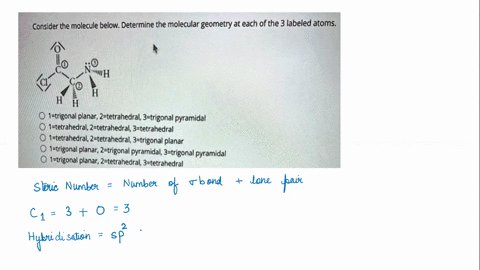 Consider the molecule below. Determine the molecular geometry at each of the 3 labeled atoms.
O
C 1 N 3 H
Cl C 2
H H H
1=trigonal planar, 2=tetrahedral, 3=trigonal pyramidal
1=tetrahedral, 2=tetrahedral, 3=tetrahedral
1=tetrahedral, 2=tetrahedral, 3=trigonal planar
1=trigonal planar, 2=trigonal pyramidal, 3=trigonal pyramidal
1=trigonal planar, 2=tetrahedral, 3=tetrahedral
Steric Number = Number of σ bond + lone pair
C₁ = 3 + 0 = 3
Hybridisation = sp²